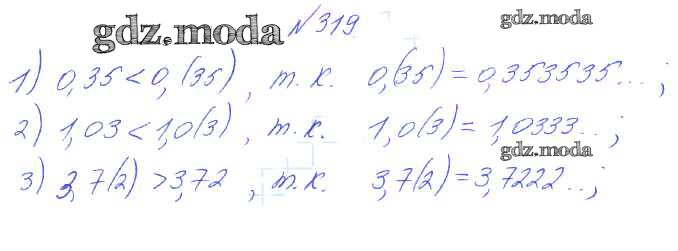 gdz.moda
gdz.moda №319
1) 0,35 < 0,(35), т.к. 0,(35) = 0,353535...;
2) 1,03 < 1,0(3), т.к. 1,0(3) = 1,0333...;
gdz.moda
3) 3,7(2) > 3,72, т.к. 3,7(2) = 3,7222...;